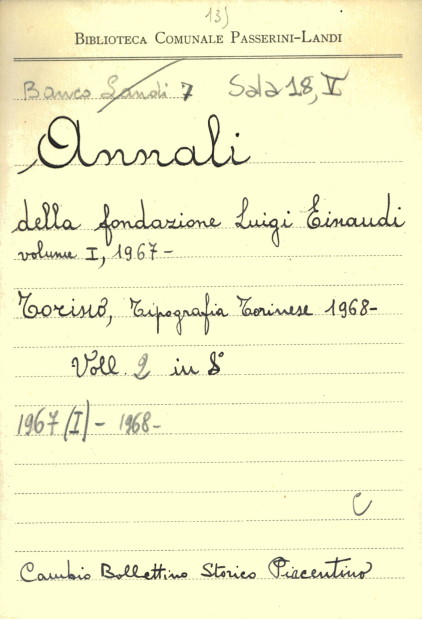 13)
BIBLIOTECA COMUNALE PASSERINI-LANDI
Banco Landi 7 Sala 18, V
Annali
della fondazione Luigi Einaudi
volume I, 1967-
Torino, Tipografia Torinese 1968-
Voll. 2 in 8°
1967 (I) - 1968-
C
Cambio Bollettino Storico Piacentino